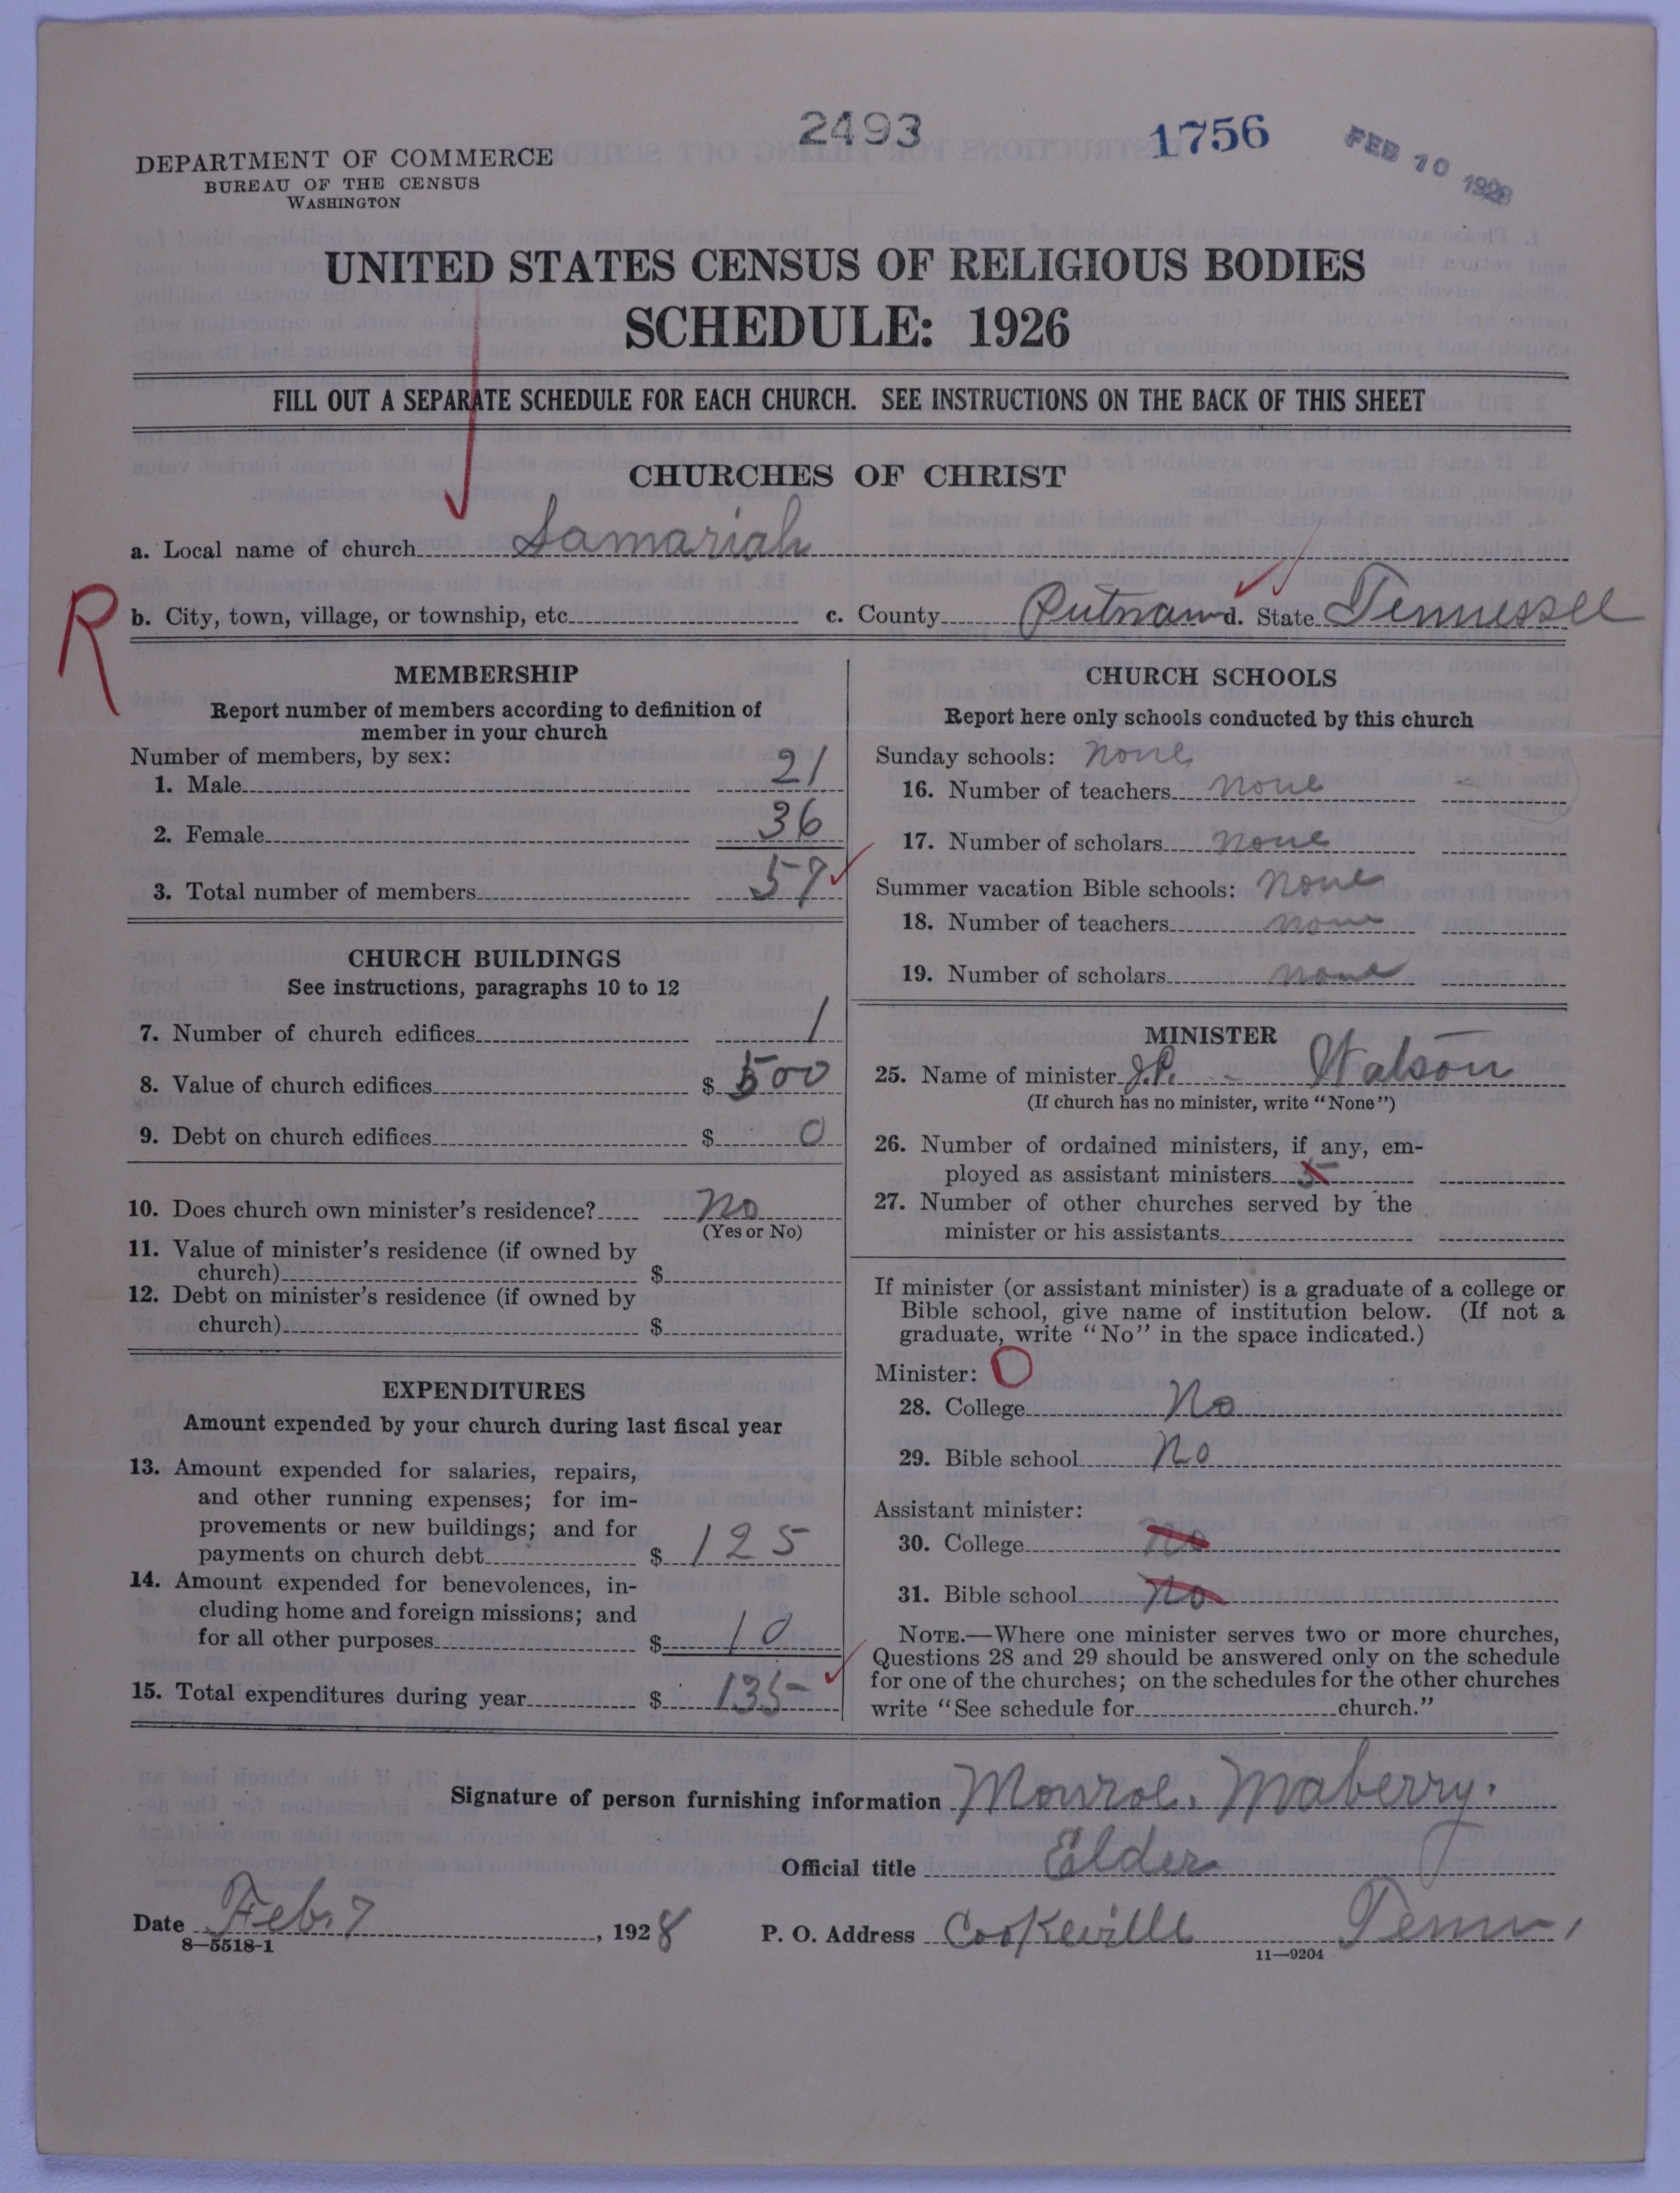 2493 1756 FEB 10 1928
DEPARTMENT OF COMMERCE
BUREAU OF THE CENSUS
WASHINGTON
UNITED STATES CENSUS OF RELIGIOUS BODIES
SCHEDULE: 1926
FILL OUT A SEPARATE SCHEDULE FOR EACH CHURCH. SEE INSTRUCTIONS ON THE BACK OF THIS SHEET
CHURCHES OF CHRIST
a. Local name of church Samariah
R
b. City, town, village, or township, etc. c. County Putnam d. State Tennessee
MEMBERSHIP
Report number of members according to definition of
member in your church
Number of members, by sex:
1. Male 21
2. Female 36
3. Total number of members 57
CHURCH BUILDINGS
See instructions, paragraphs 10 to 12
7. Number of church edifices 1
8. Value of church edifices $ 500
9. Debt on church edifices $ 0
10. Does church own minister's residence? No
(Yes or No)
11. Value of minister's residence (if owned by
church) $
12. Debt on minister's residence (if owned by
church) $
EXPENDITURES
Amount expended by your church during last fiscal year
13. Amount expended for salaries, repairs,
and other running expenses; for im-
provements or new buildings; and for
payments on church debt $ 125
14. Amount expended for benevolences, in-
cluding home and foreign missions; and
for all other purposes $ 10
15. Total expenditures during year $ 135
CHURCH SCHOOLS
Report here only schools conducted by this church
Sunday schools: none
16. Number of teachers none
17. Number of scholars none
Summer vacation Bible schools: none
18. Number of teachers none
19. Number of scholars none
MINISTER
25. Name of minister J.P. Watson
(If church has no minister, write "None")
26. Number of ordained ministers, if any, em-
ployed as assistant ministers 5
27. Number of other churches served by the
minister or his assistants
If minister (or assistant minister) is a graduate of a college or
Bible school, give name of institution below. (If not a
graduate, write "No" in the space indicated.)
Minister: O
28. College No
29. Bible school No
Assistant minister:
30. College No
31. Bible school No
NOTE.—Where one minister serves two or more churches,
Questions 28 and 29 should be answered only on the schedule
for one of the churches; on the schedules for the other churches
write "See schedule for church."
Signature of person furnishing information Monroe. Maberry.
Official title Elder
Date Feb. 7, 1928 P. O. Address Cookeville Tenn,
8—5518-1 11—9204